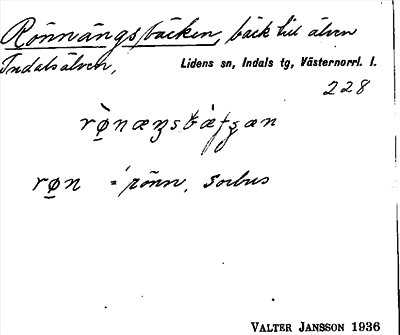 Rönnängsbäcken, bäck till älven
Indalsälven, Lidens sn, Indals tg, Västernorrl. l.
228
rø̀næŋsbæ̀ʃʂæn
røn = rönn, sorbus
VALTER JANSSON 1936